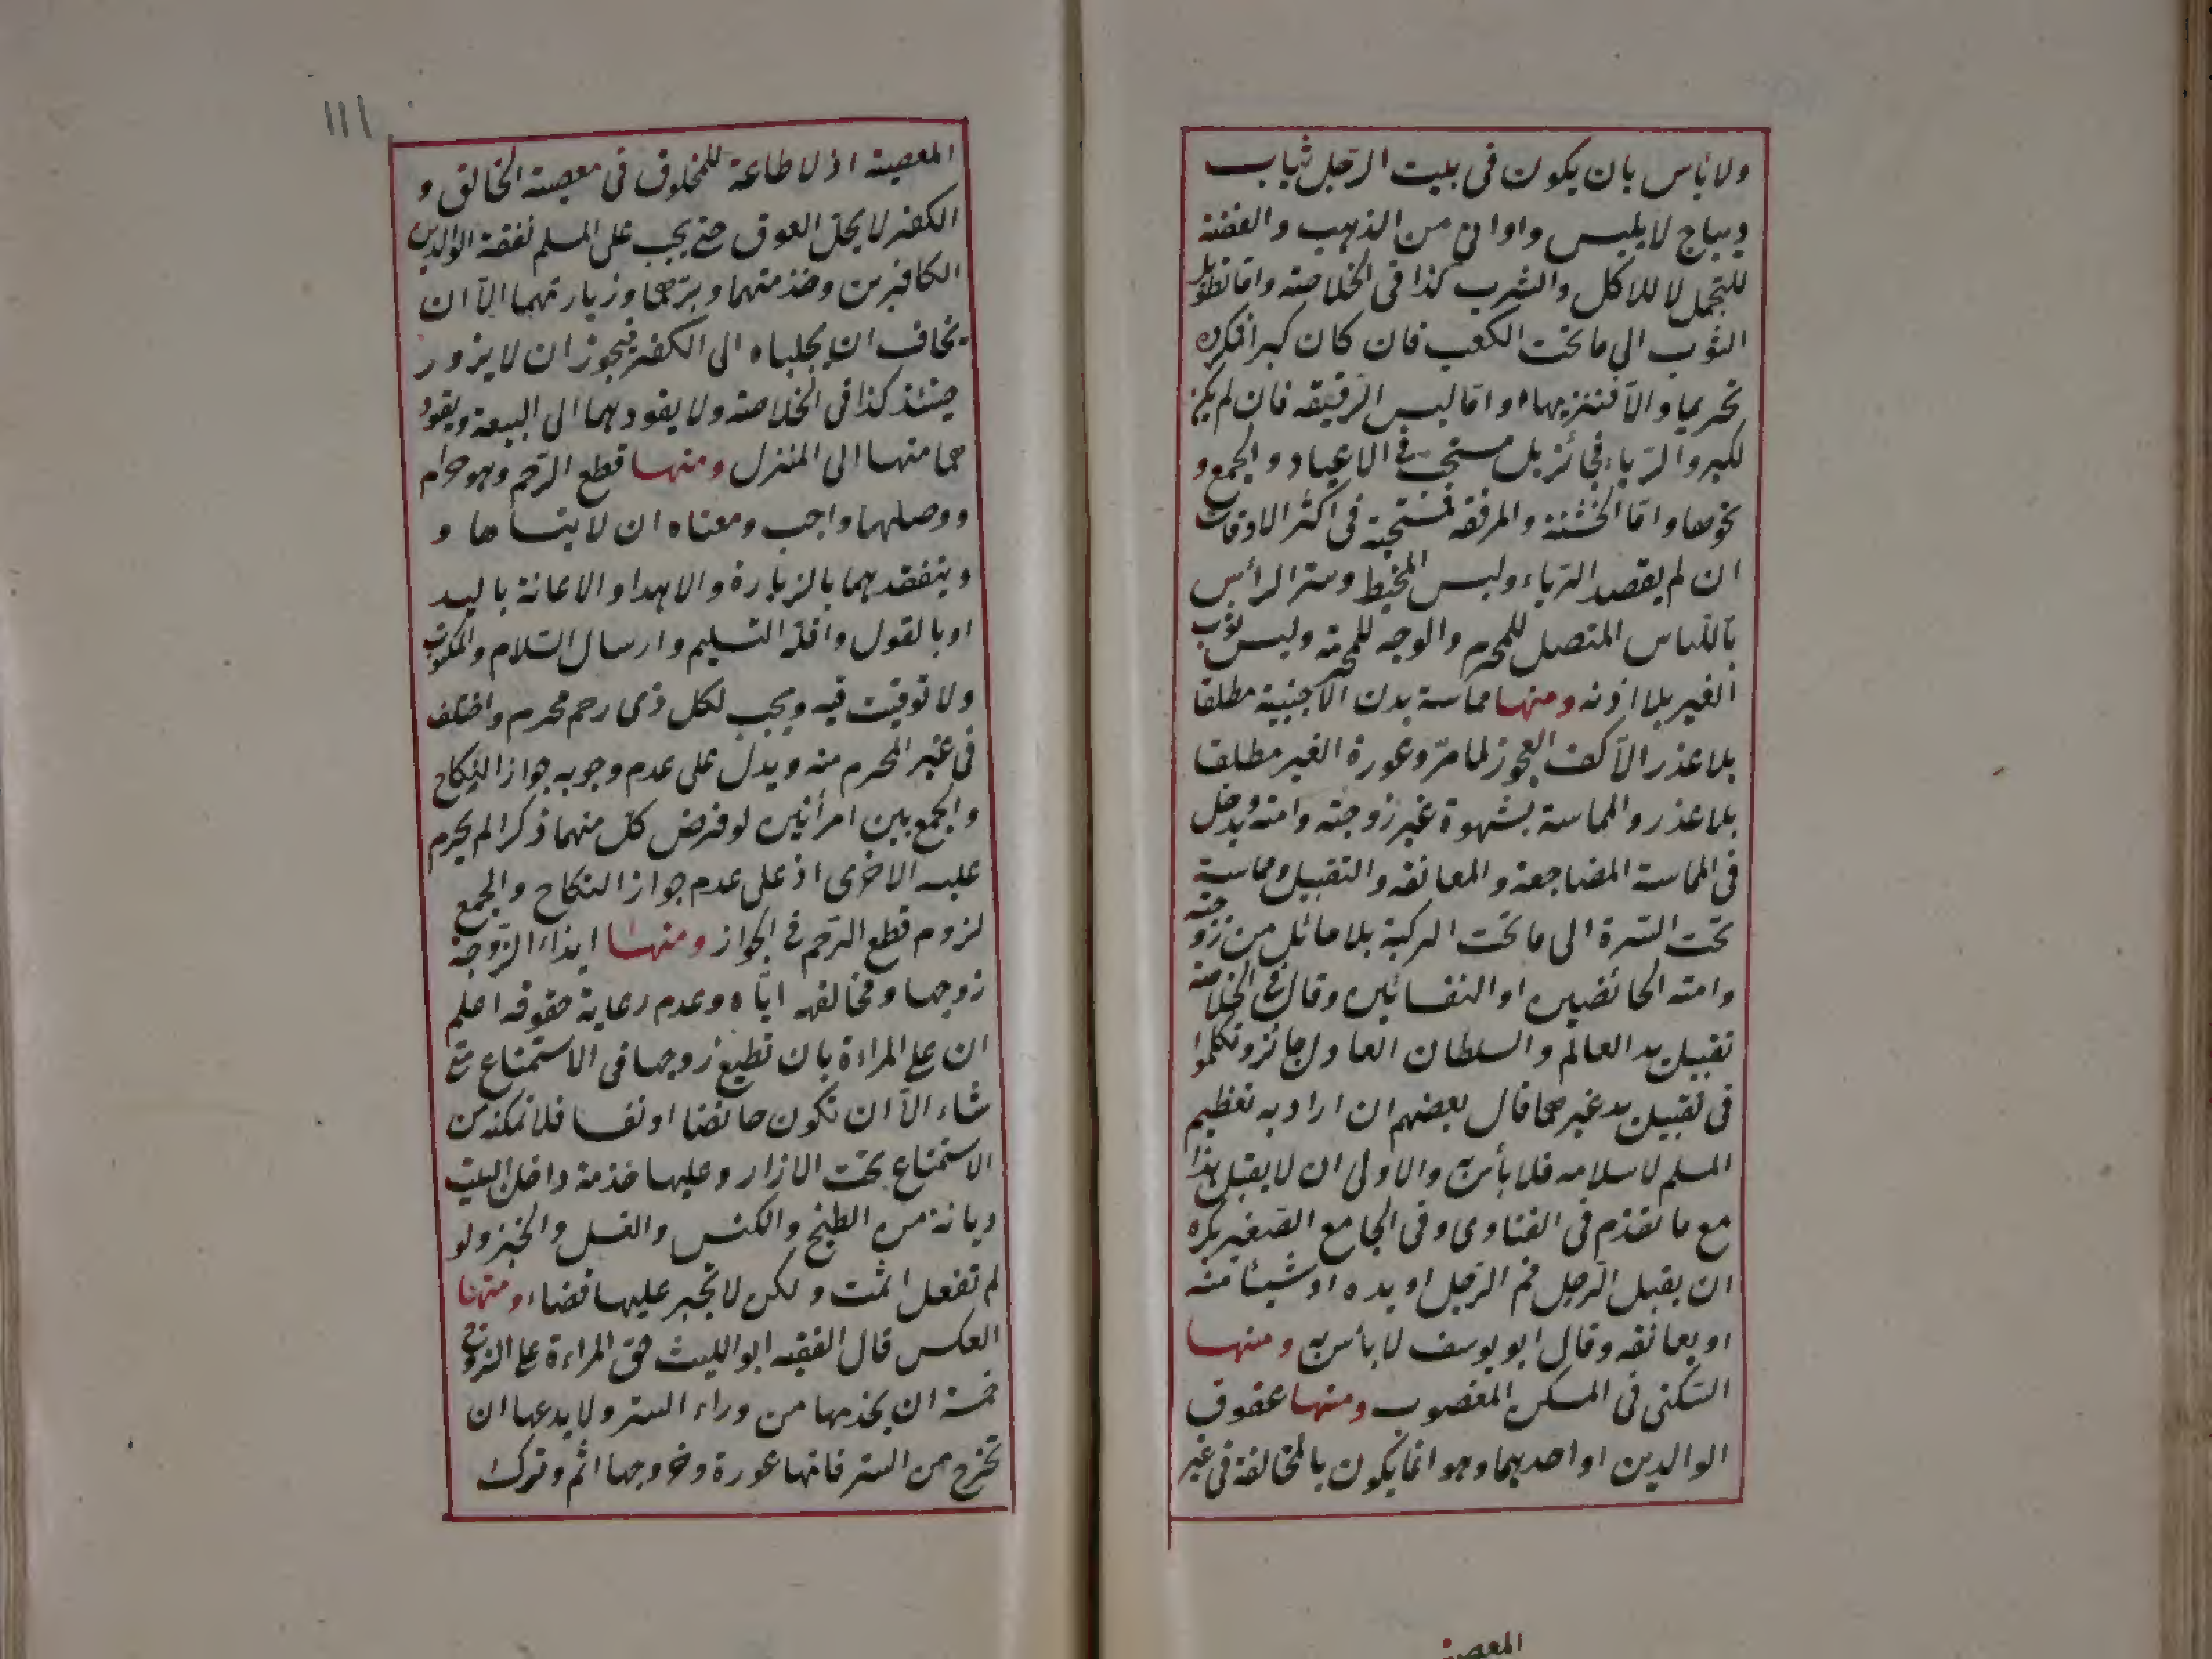 ولا بأس بان يكون فى بيت الرّجل ثياب
ديباج لا يلبس واوانى من الذهب والفضة
للتجمل لا للاكل والشرب كذا فى الخلاصة وامّا تطويل
الثوب الى ما تحت الكعب فان كان كبرا فمكروه
تحريما والّا فتنزيها وامّا لبس الرقيقه فان لم يكن
لكبر والرّياء فجائز بل مستحب فى الاعياد والجمع و
نحوها وامّا الخشنة والمرقعة فمستحبة فى اكثر الاوقات
ان لم يقصد الرّياء ولبس المخيط وستر الرأس
باللّباس المتصل للمحرم والوجه للمحرمة ولبس ثوب
الغير بلا اذنه ومنها مماسة بدن الاجنبية مطلقا
بلا عذر الّا كف العجوز لما مرّ وعورة الغير مطلقا
بلا عذر والمماسة بشهوة غير زوجته وامته ويدخل
فى المماسة المضاجعة والمعانقه والتقبيل ومماسة
تحت السّرة الى ما تحت الركبة بلا حائل من زوجته
وامته الحائضين او النفسائين وقال فى الخلاصة
تقبيل يد العالم والسلطان العادل جائز وتكلموا
فى تقبيل يد غيرهما قال بعضهم ان اراد به تعظيم
المسلم لاسلامه فلا بأس به والاولى ان لا يقبل هذا
مع ما تقدّم فى الفتاوى وفى الجامع الصّغير يكره
ان يقبل الرّجل فم الرّجل او يده او شيئا منه
او يعانقه وقال ابو يوسف لا بأس به ومنها
السّكنى فى المسكن المغصوب ومنها عقوق
الوالدين او احدهما وهو انما يكون بالمخالفة فى غير
المعصية
١١١
المعصية اذ لا طاعة للمخلوق فى معصية الخالق و
الكفر لا يحل العقوق حتى يجب على المسلم نفقة الوالدين
الكافرين وخدمتهما وبرّهما وزيارتهما الّا ان
يخاف ان يجلباه الى الكفر فيجوز ان لا يزور
حينئذ كذا فى الخلاصة ولا يقود بهما الى البيعة ويقود
هما منها الى المنزل ومنها قطع الرّحم وهو حرام
ووصلها واجب ومعناه ان لا ينساها و
ويتفقد بهما بالزيارة والاهدا والاعانة باليد
او بالقول واقله التسليم وارسال السّلام والمكتوب
ولا توقيت فيه ويجب لكل ذى رحم محرم واختلف
فى غير المحرم منه ويدل على عدم وجوبه جواز النكاح
والجمع بين امرأتين لو فرض كلّ منهما ذكرا لم يحرم
عليه الاخرى اذ على عدم جواز النكاح والجمع
لزوم قطع الرّحم فى الجواز ومنها ايذاء الزّوجة
زوجها ومخالفه ايّاه وعدم رعاية حقوقه اعلم
ان على المراءة بان تطيع زوجها فى الاستمتاع متى
شاء الّا ان تكون حائضا او نفسا فلا تمكنه من
الاستمتاع تحت الازار وعليها خدمة داخل البيت
ديانة من الطبخ والكنس والغسل والخبز ولو
لم تفعل اثمت ولكن لا تجبر عليها قضاء ومنها
العكس قال الفقيه ابو الليث حق المراءة على الزوج
خمسة ان يخدمها من وراء الستر ولا يدعها ان
تخرج من الستر فانها عورة وخروجها اثم وترك